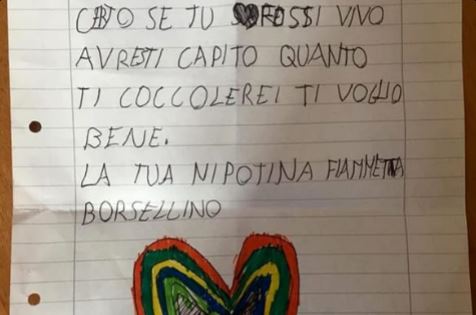 SE TU FOSSI VIVO
AVRESTI CAPITO QUANTO
TI COCCOLEREI TI VOGLIO
BENE.
LA TUA NIPOTINA FIAMMETTA
BORSELLINO